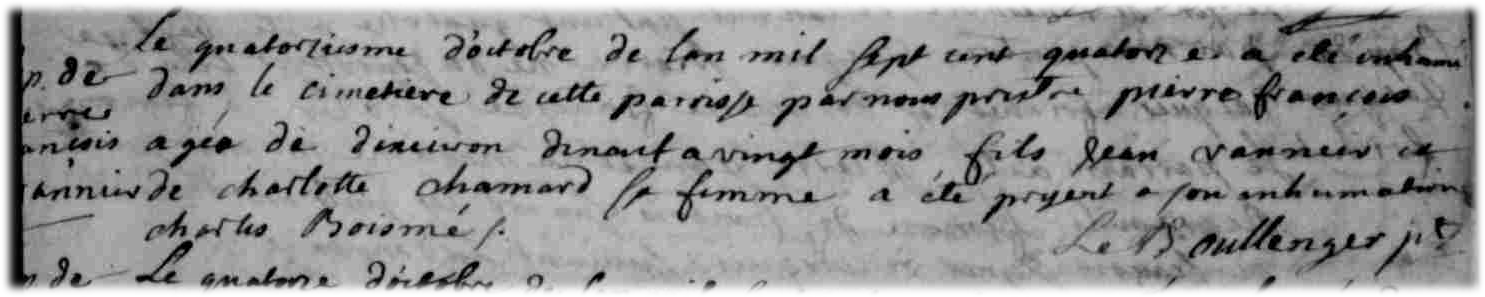 Le quatorziesme d'octobre de lan mil sept cent quatorze a eté inhumé
p. de dans le cimetiere de cette paroisse par nous prestre pierre françois
ierre
ançois agéo de denviron dixouit a vingt mois fils Jean vannier et
vannier de charlotte chamard sa femme a été present a son inhumation
charles Boismé s.
Le Boullenger pt
p. de Le quatorze d'octobre de